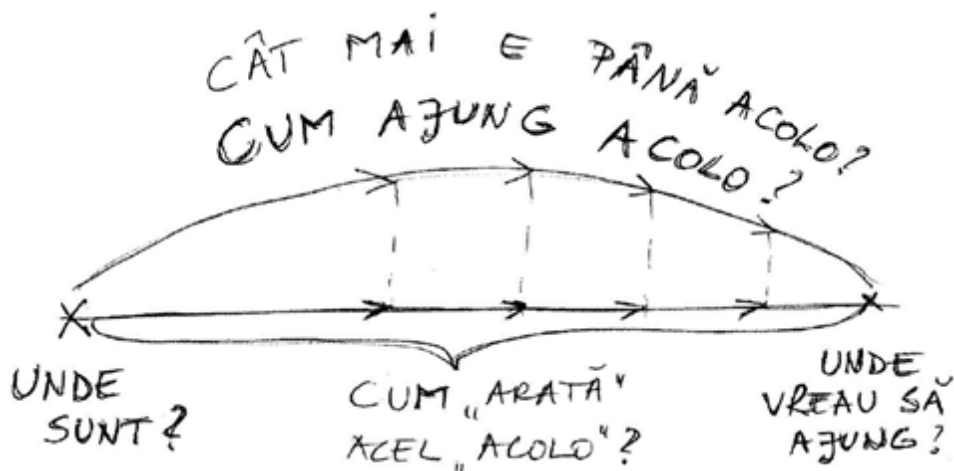 CÂT MAI E PÂNĂ ACOLO?
CUM AJUNG ACOLO?
UNDE
SUNT?
CUM „ARATĂ"
ACEL „ACOLO"?
UNDE
VREAU SĂ
AJUNG?